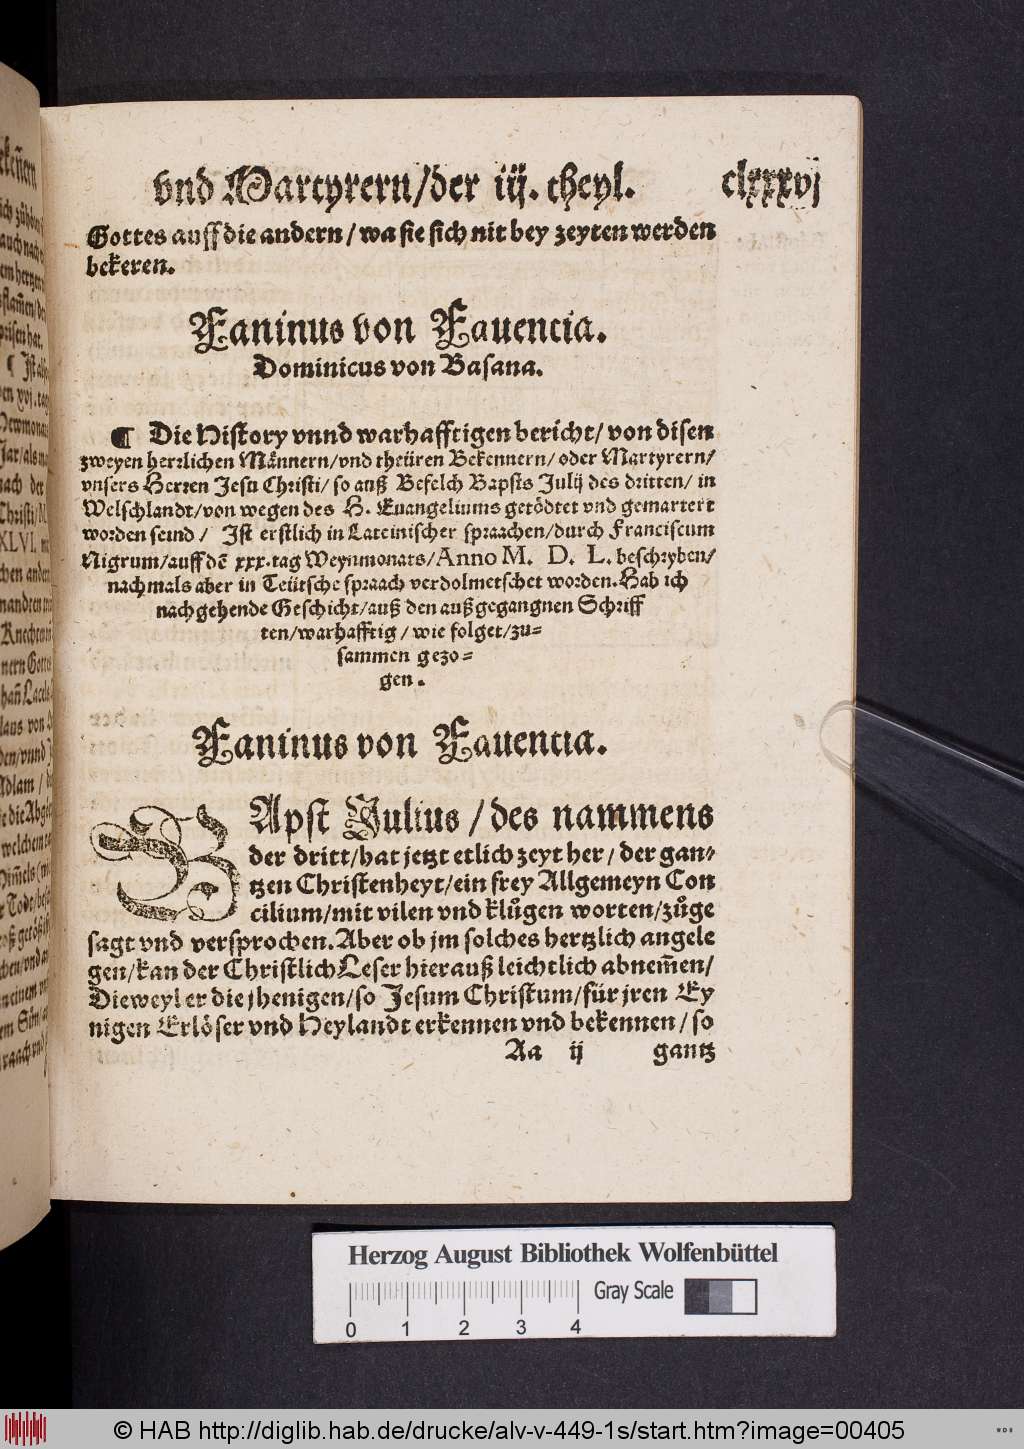 vnd Martyrern/der iij. theyl. clxxxvj
Gottes auff die andern / wa sie sich nit bey zeyten werden
bekeren.
Faninus von Fauentia.
Dominicus von Basana.
¶ Die History vnnd warhafftigen bericht/ von disen
zweyen herrlichen Männern/vnd theüren Bekennern/ oder Martyrern/
vnsers Herren Jesu Christi/ so auß Befelch Bapsts Julij des dritten/ in
Welschlandt/von wegen des H. Euangeliums getödtet vnd gemartert
worden seind / Ist erstlich in Lateinischer spraachen/durch Franciscum
Nigrum/auff dẽ xxx.tag Weynmonats/Anno M. D. L. beschryben/
nachmals aber in Teütsche spraach verdolmetschet worden. Hab ich
nachgehende Geschicht/auß den außgegangnen Schriff
ten/warhafftig / wie folget/zu=
sammen gezo=
gen.
Faninus von Fauentia.
BApst Julius / des nammens
der dritt/hat jetzt etlich zeyt her / der gan=
tzen Christenheyt/ein frey Allgemeyn Con
cilium/mit vilen vnd klůgen worten/zůge
sagt vnd versprochen. Aber ob jm solches hertzlich angele
gen/kan der Christlich Leser hierauß leichtlich abnem̃en/
Dieweyl er die jhenigen/so Jesum Christum/für jren Ey
nigen Erlöser vnd Heylandt erkennen vnd bekennen / so
Aa ij gantz
Herzog August Bibliothek Wolfenbüttel
Gray Scale
0 1 2 3 4
© HAB http://diglib.hab.de/drucke/alv-v-449-1s/start.htm?image=00405